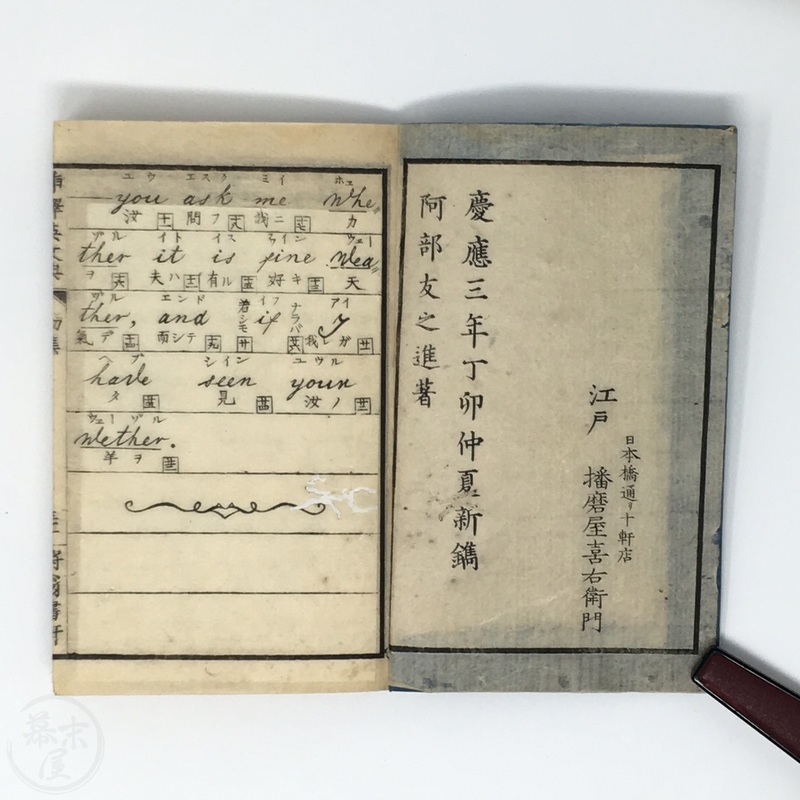 ユウ エスク ミイ ホェ
you ask me Whe〃
汝 十一 問フ 我ニ カ
ヅル イト イス ファイン ウェー
ther it is fine Wea〃
ヲ 夫ハ 有ル 好キ 天
ヅル エンド イフ アイ
ther, and if I
氣デ 而シテ 若シモ ナラバ 我レガ
ヘブ シイン ユウル
have seen youn
タ 見 汝ノ
ウェー ヅル
Wether.
羊ヲ
慶應三年丁卯仲夏新鐫
阿部友之進著
江戸
日本橋通リ十軒店
播磨屋喜右衛門
幕末屋